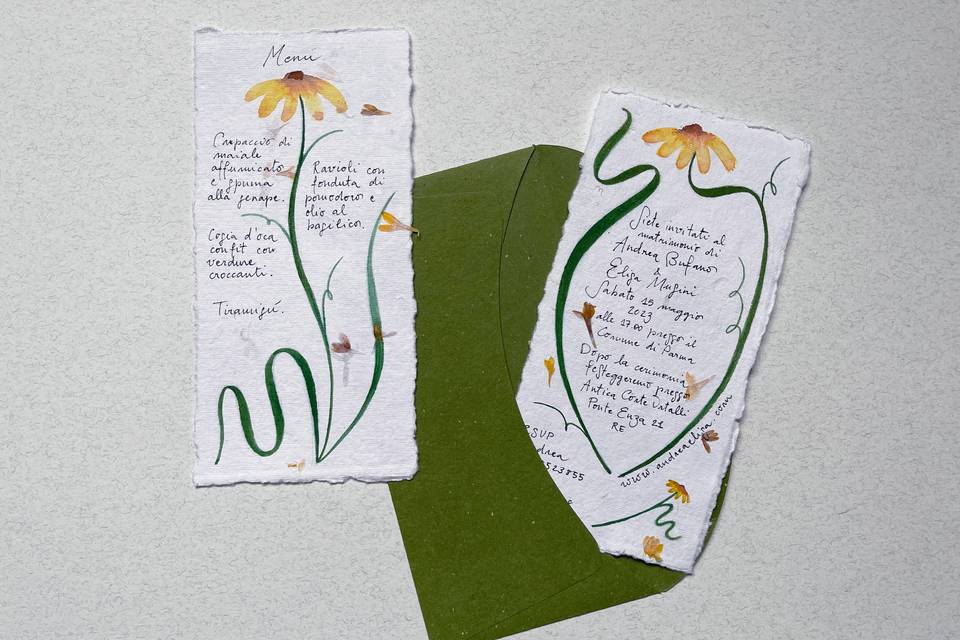 Menú
Carpaccio di
maiale
affumicato
e spuma
alla senape.
Cogia d'oca
confit con
verdure
croccanti.
Tiramigú.
Ravioli con
fonduta di
pomodoro e
olio al
basilico.
Siete invitati al
matrimonio di
Andrea Bufano
&
Eliga Mugini
Sabato 15 maggio
2023
alle 17.00 presso il
Comune di Parma
Dopo la cerimonia
festeggeremo presso
Antica Corte
Ponte Enza 21
RE
RSVP
drea
523855
www.andreaeliga.com